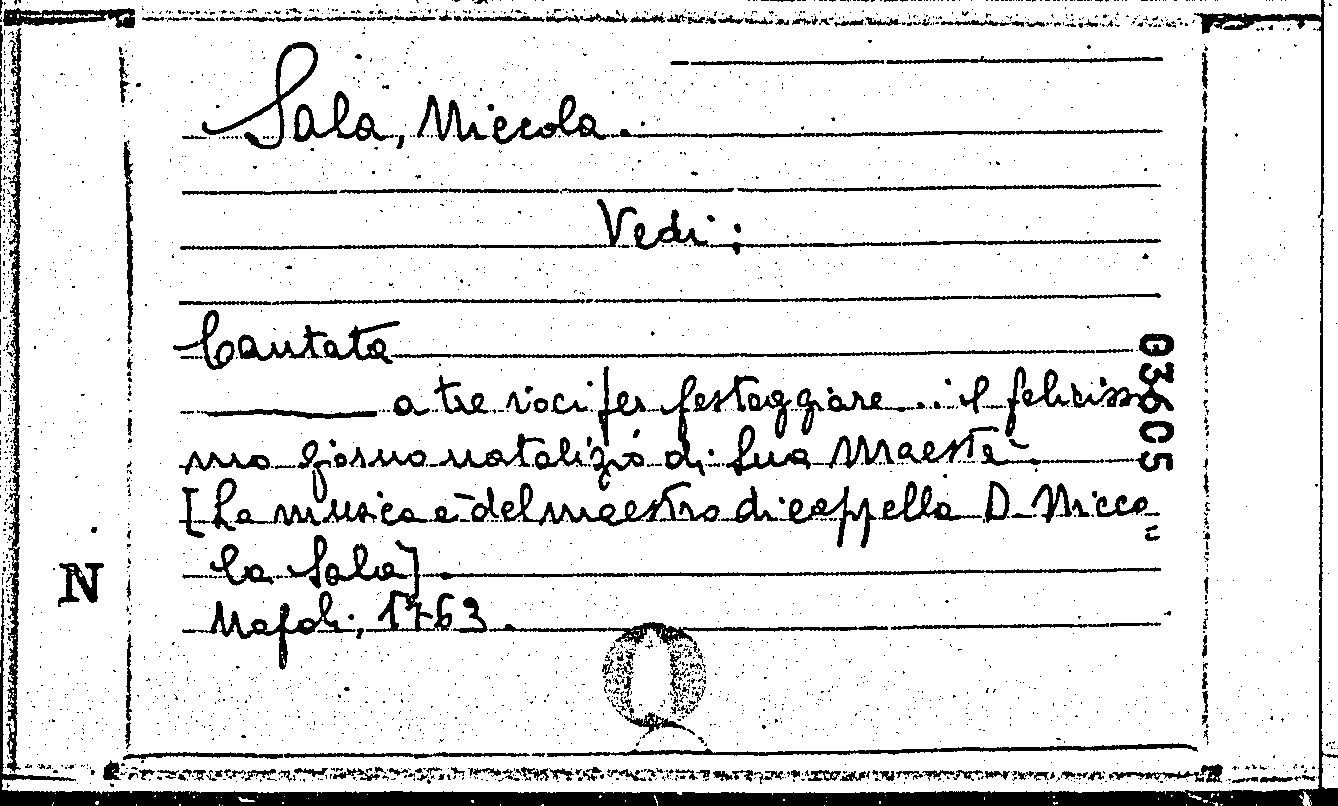 Sala, Niccola.
Vedi:
Cantata
——— a tre voci per festeggiare... il felicissi
mo giorno natalizio di Sua Maestà.
[La musica è del maestro di cappella D. Nicco=
la Sala].
Napoli, 1763.
N
03605